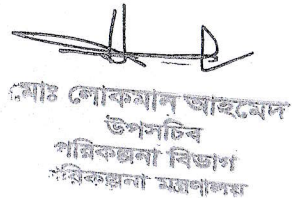 মোঃ লোকমান আহমেদ
উপসচিব
পরিকল্পনা বিভাগ
পরিকল্পনা মন্ত্রণালয়